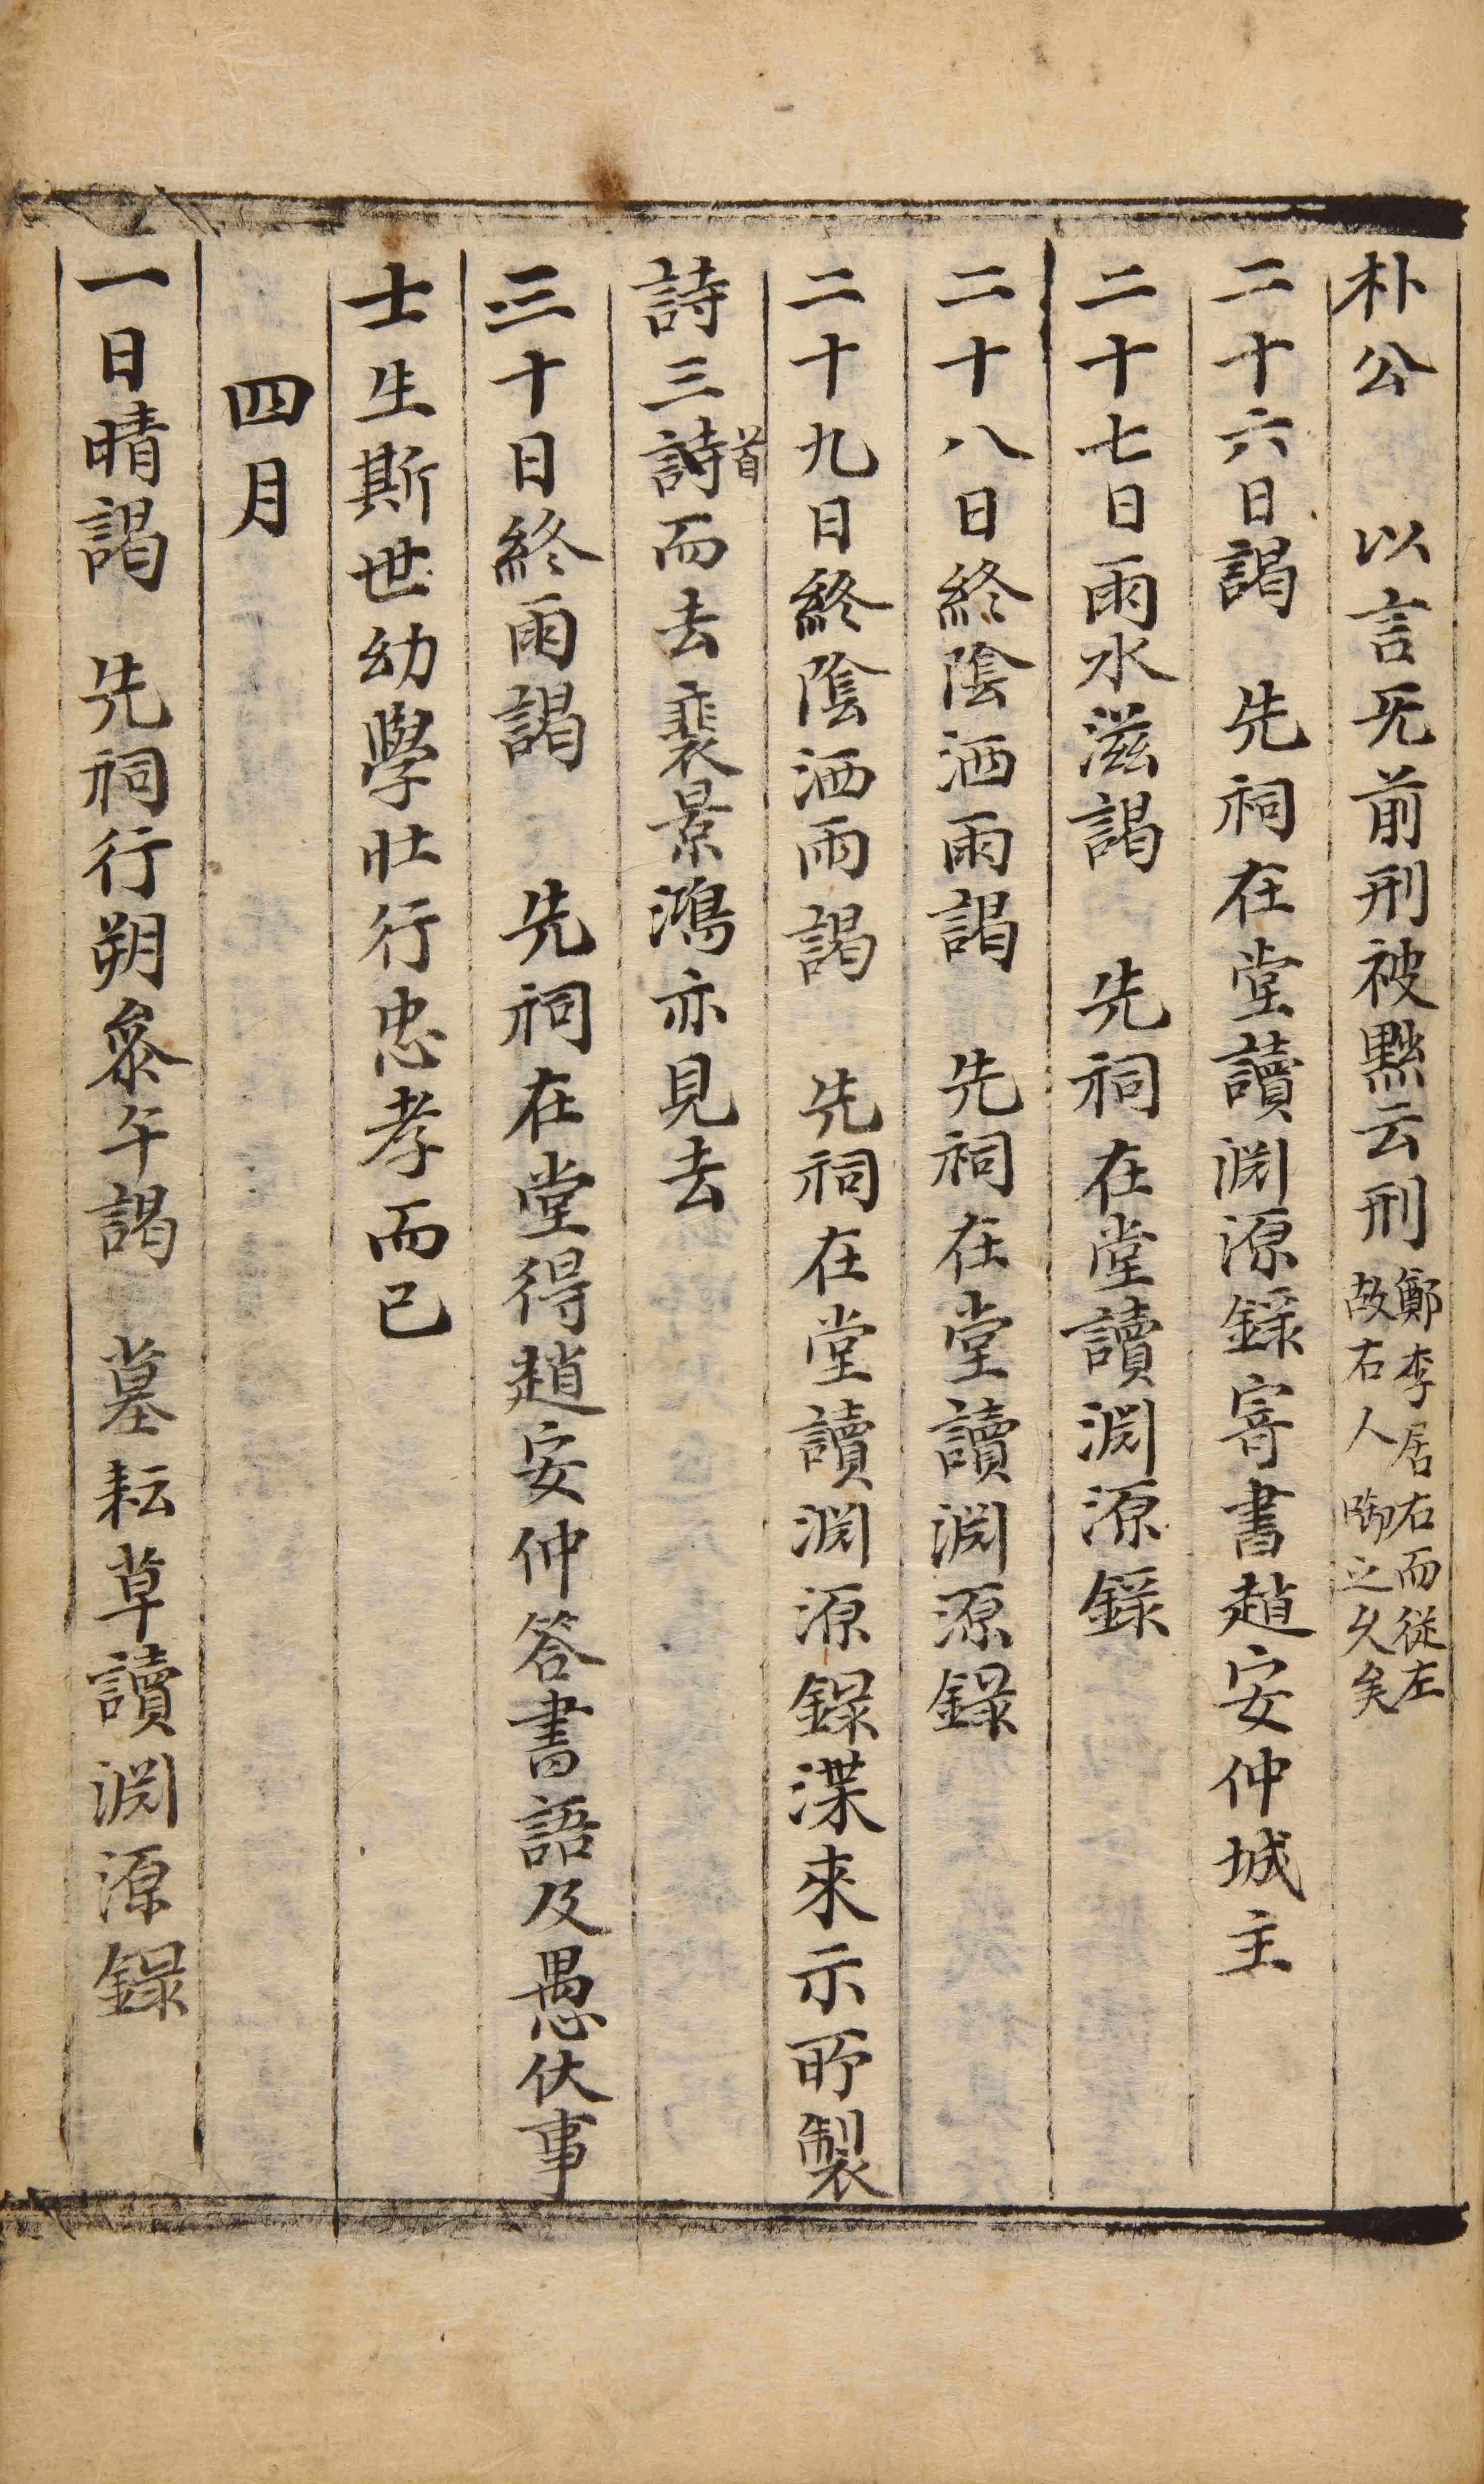 朴公 以言旡前刑被黙云刑鄭李居右而從左
故右人啣之久矣
二十六日謁 先祠在堂讀淵源錄寄書趙安仲城主
二十七日雨水滋謁 先祠在堂讀淵源錄
二十八日終陰洒雨謁 先祠在堂讀淵源錄
二十九日終陰洒雨謁 先祠在堂讀淵源錄渫來示所製
詩三詩首而去裴景鴻亦見去
三十日終雨謁 先祠在堂得趙安仲答書語及愚伏事
士生斯世幼學壯行忠孝而已
四月
一日晴謁 先祠行朔叅午謁 墓耘草讀淵源錄